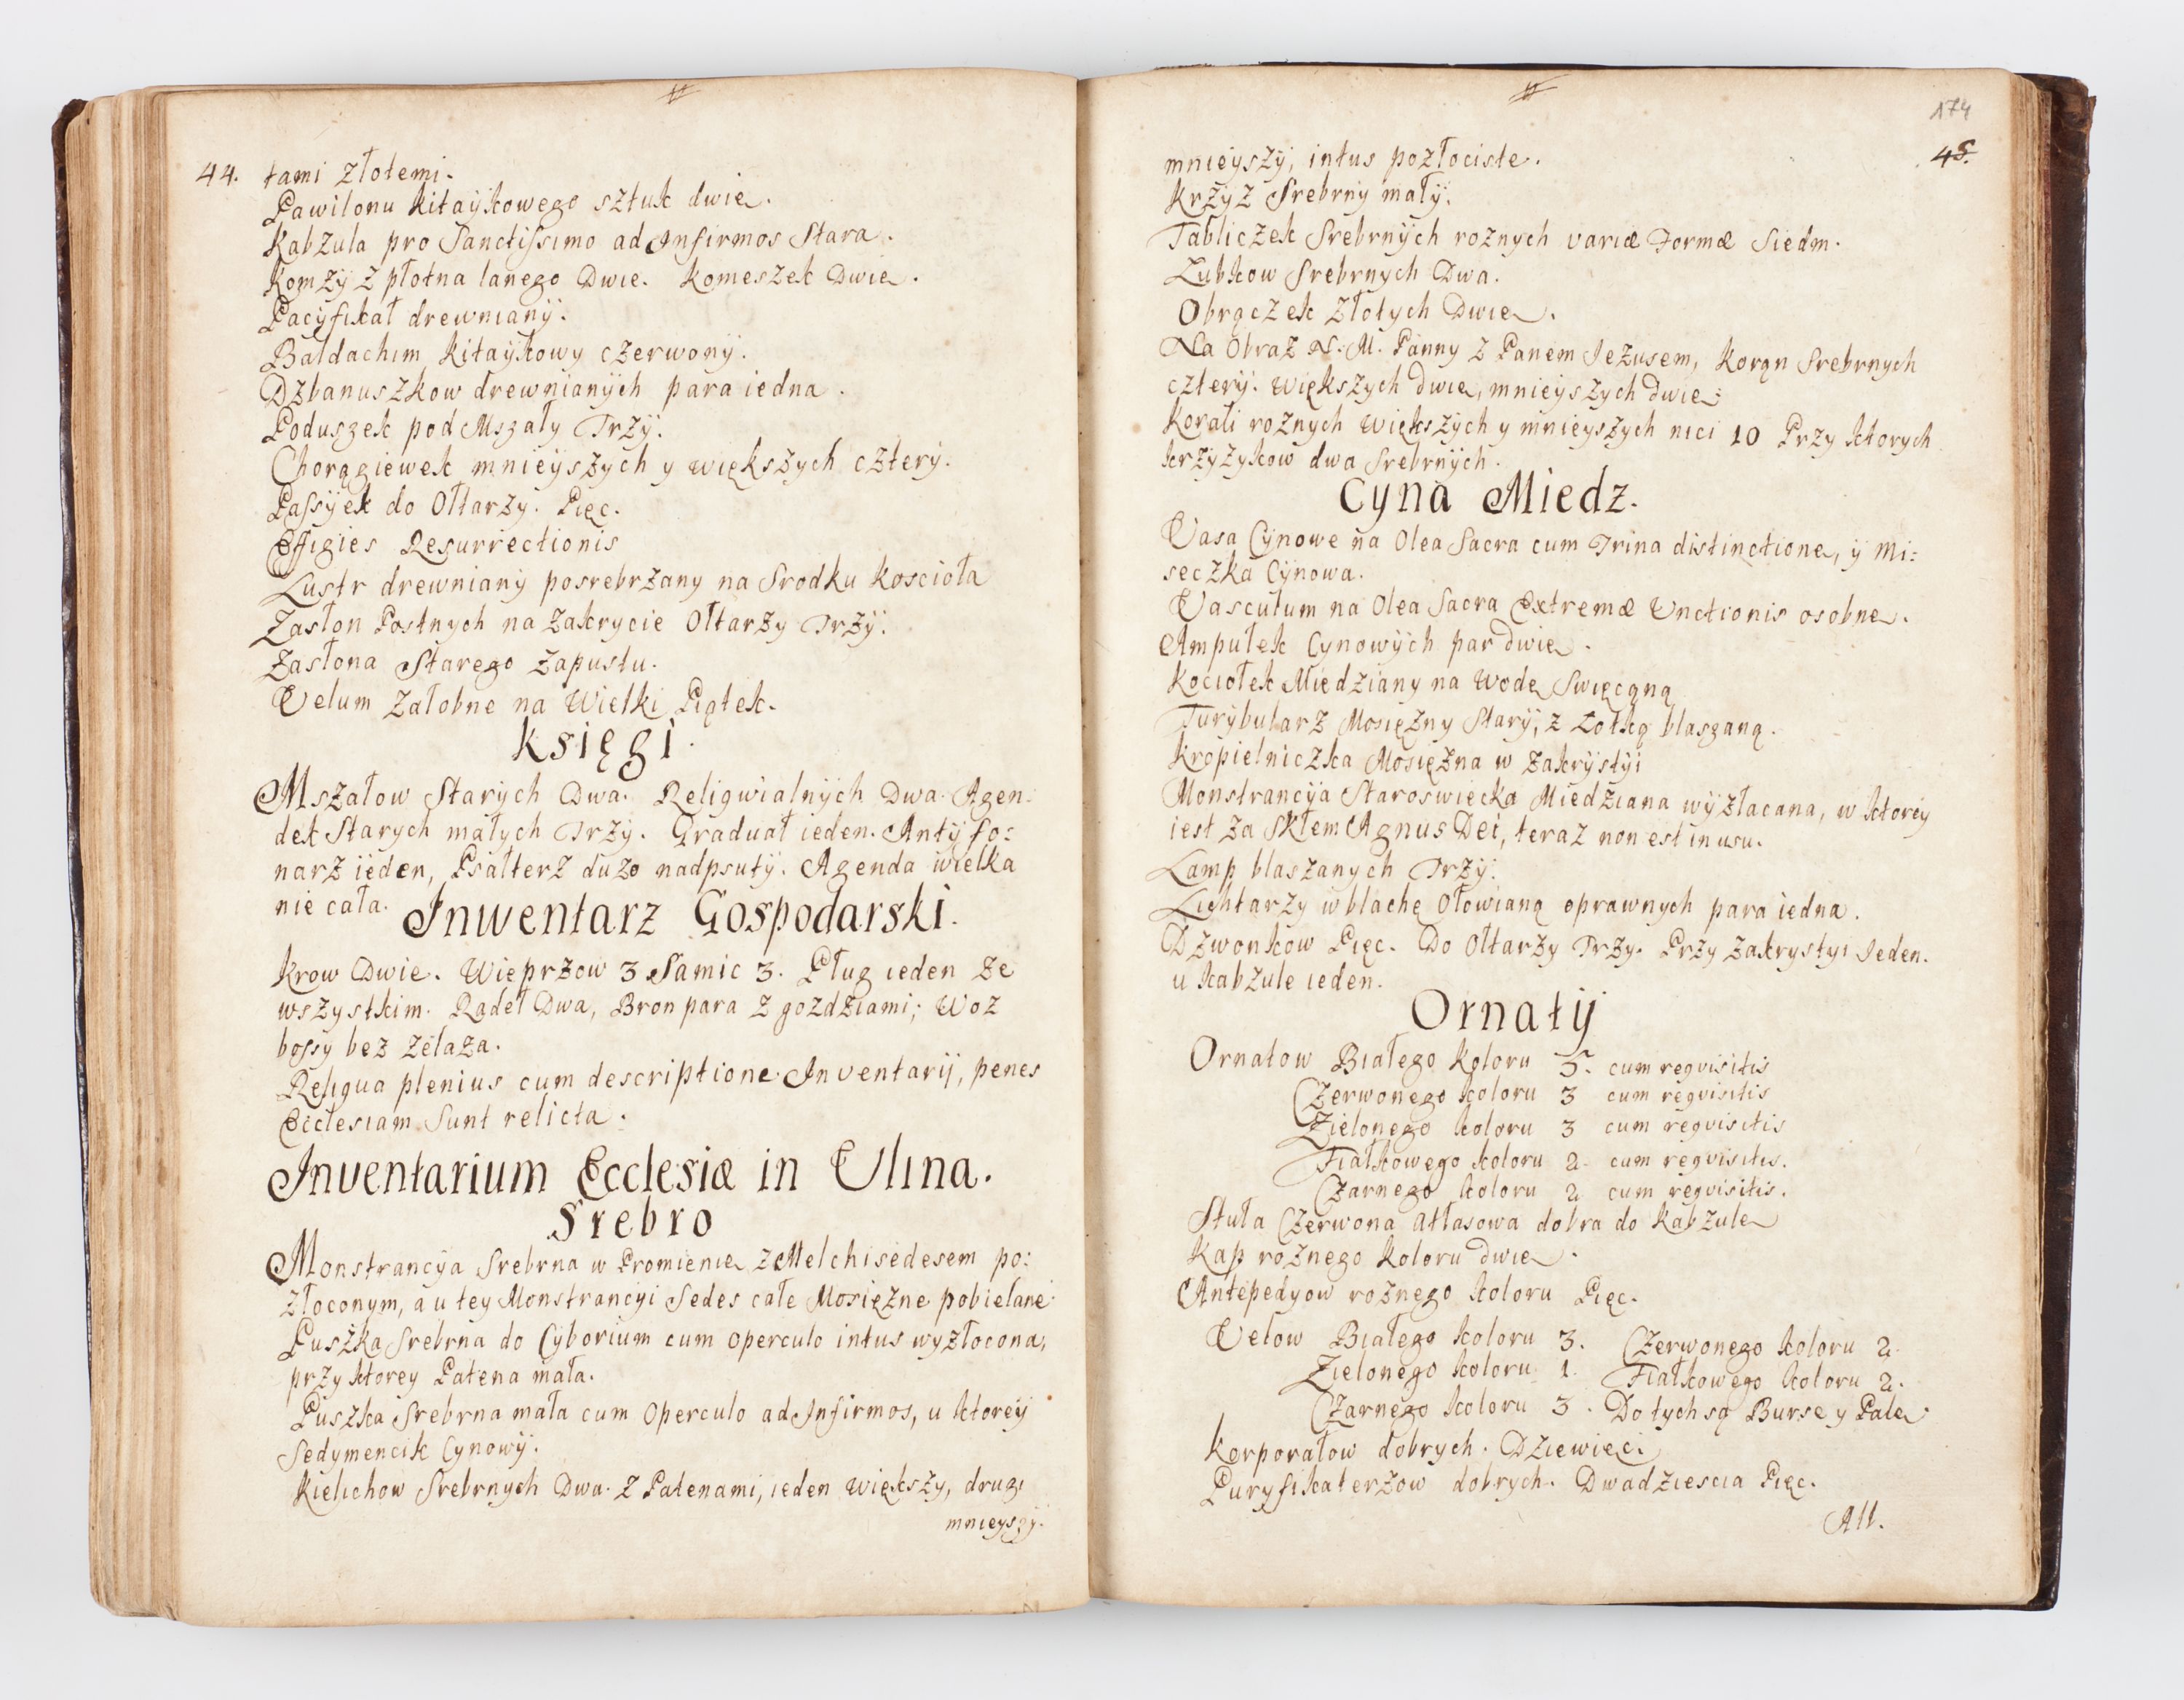 44.
tami złotemi.
Pawilonu kitaÿkowego sztuk dwie.
Kabzula pro Sanctissimo ad Infirmos Stara.
Komzÿ z płotna lanego Dwie. Komeszek Dwie.
Pacÿfikał drewnianÿ.
Baldachim kitaÿkowy czerwonÿ.
Dzbanuszkow drewnianÿch para iedna.
Poduszek pod Mszały Trzÿ.
Chorągiewek mnieÿszych y większych czterÿ.
Passÿek do Ołtarzy. Pięc.
Effigies Resurrectionis
Lustr drewnianÿ posrebrzany na Srodku kościoła
Zasłon Postnych na zakrycie Ołtarzy Trzÿ.
Zasłona Starego zapustu.
Velum żałobne na Wielki Piątek.
Księgi.
Mszałow Starÿch Dwa. Religwialnÿch Dwa. Agen:
dek Starych małych Trzy. Graduał ieden. Antÿfo:
narz ieden, Psałterz duzo nadpsutÿ. Agenda wielka
nie cała.
Inwentarz Gospodarski.
Krow Dwie. Wieprzow 3 Samic 3. Pług ieden ze
wszystkim. Radeł Dwa, Bron para z gozdziami; Woz
bossy bez żelaza.
Reliqua plenius cum descriptione Inventarij, penes
Ecclesiam Sunt relicta.
Inventarium Ecclesiæ in Ulina.
Srebro
Monstrancÿa Srebrna w Promienie z Melchisedesem po:
złoconym, a u tey Monstrancÿi Sedes całe Mosiężne pobielane.
Puszka Srebrna do Cÿborium cum operculo intus wyzłocona,
przy ktorey Patena mała.
Puszka Srebrna mała cum Operculo ad Infirmos, u ktorey
Sedymencik Cynowÿ.
Kielichow Srebrnych Dwa. z Patenami, ieden większy, drugi
mnieyszÿ.
174
45.
mnieyszÿ, intus pozłociste.
Krzÿz Srebrnÿ małÿ.
Tabliczek Srebrnÿch roznych variæ Formæ Siedm.
Zubkow Srebrnych Dwa.
Obrączek Złotych Dwie.
Na Obraz N. M. Panny z Panem Jezusem, korąn Srebrnych
czterÿ. większych dwie, mnieyszych dwie;
Korali roznych większÿch y mnieyszych nici 10 Przy ktorych
krzÿżykow dwa Srebrnÿch.
Cyna Miedz.
Vasa Cÿnowe na Olea Sacra cum Trina distinctione, ÿ Mi:
seczka Cÿnowa.
Vasculum na Olea Sacra Extremæ Unctionis osobne.
Ampułek Cynowÿch par dwie.
Kociołek Miedziany na Wodę Swięcąną
Turÿbularz Mosiężny Starÿ, z Łotką blaszaną.
Kropielniczka Mosiężna w Zakrÿstÿi
Monstrancÿa Staroswiecka Miedziana wÿzłacana, w ktorey
iest za Skłem Agnus Dei, teraz non est in usu.
Lamp blaszanych Trzÿ.
Lichtarzy w blachę Ołowianą oprawnych para iedna.
Dzwonkow Pięc. Do Ołtarzy Trzy. Przy Zakrystyi Jeden.
u kabzule ieden.
Ornatÿ
Ornatow Białego koloru 5. cum reqvisitis
Czerwonego koloru 3 cum reqvisitis
Zielonego koloru 3 cum reqvisitis
Fiałkowego koloru 2. cum reqvisitis.
Czarnego koloru 2 cum reqvisitis.
Stuła Czerwona Atłasowa dobra do kabzule
Kap roznego koloru dwie.
Antepedyow rożnego koloru Pięc.
Velow Białego koloru 3. Czerwonego koloru 2.
Zielonego koloru 1. Fiałkowego koloru 2.
Czarnego koloru 3. Do tych są Burse y Pale.
Korporałow dobrych. Dziewięć.
Puryfikaterzow dobrych. Dwadziescia Pięc.
All.